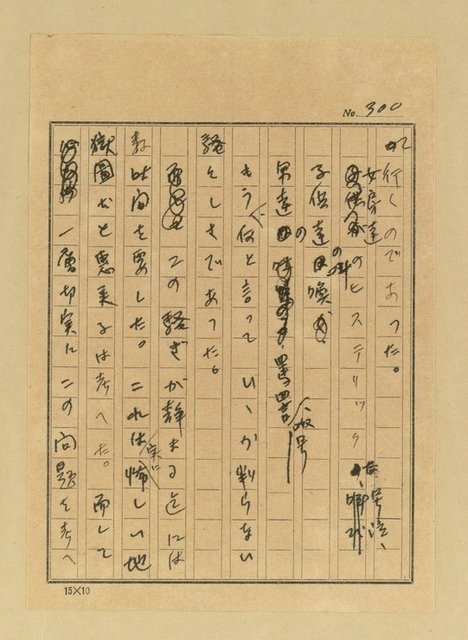 No. 300
行くのであった。
女房達のヒステリック 号泣、
子供達の
男達の 怒号
もう何と言っていゝか判らない
騒々しさであった。
この騒ぎが静まる迄には
数時間を要した。これは実に怖しい地
獄図だと恵美子は考へた。而して
一層切実にこの問題を考へ
15×10